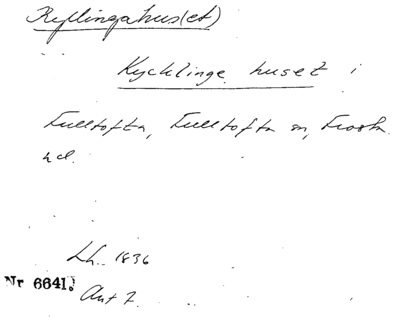 Kyllingahus(et)
Kycklinge huset i
Fulltofta, Fulltofta sn, Frosta
hd.
Lh. 1836
Nr 6641.
Ant 7.